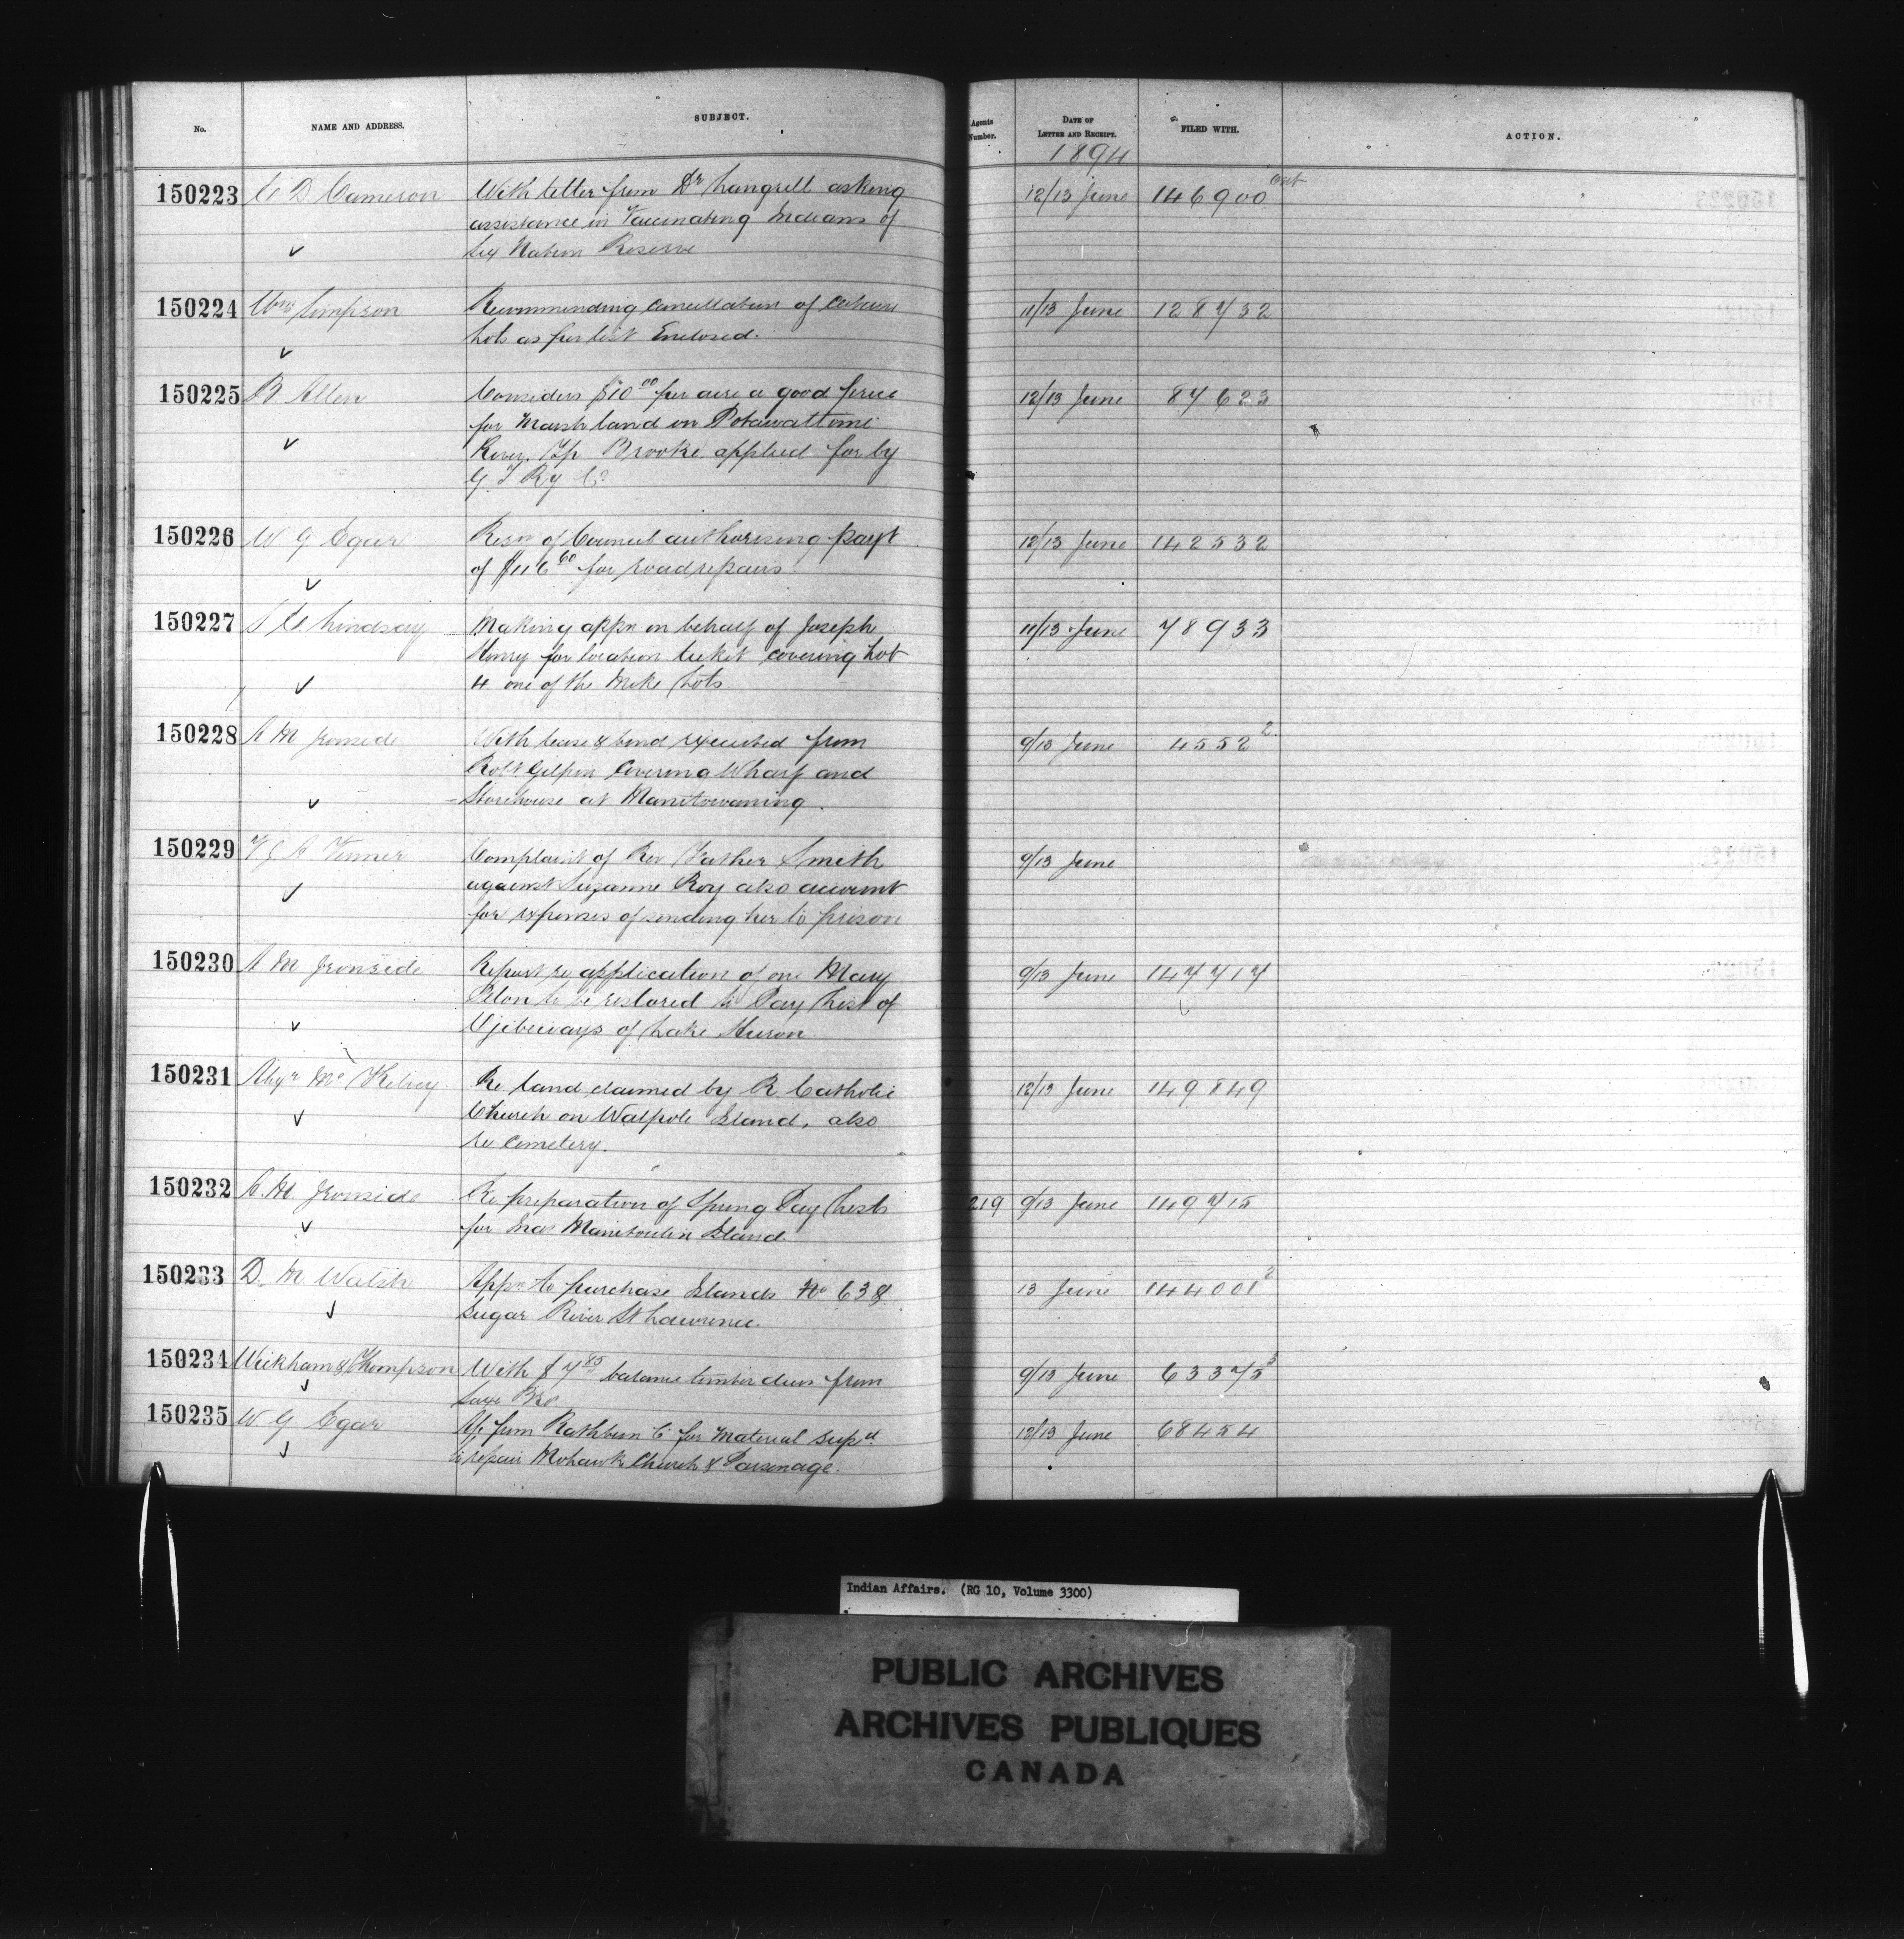 No.
NAME AND ADDRESS.
SUBJECT.
Agents Number.
DATE OF LETTER AND RECEIPT.
FILED WITH.
ACTION.
1894
150223 E D Cameron With letter from Dr Langrill asking 12/13 June 146900
assistance in Vaccinating Indians of
Six Nation Reserve
150224 Wm Simpson Recommending Cancellation of Certain 11/13 June 128732
Lots as per list Enclosed.
150225 B Allen Considers $10 00 per acre a good price 12/13 June 87623
for Marsh land on Potawattomi
River, Tp Brooke applied for by
G T Ry Co
150226 W G Egar Resn of Council authorising payt 12/13 June 142532
of $116 60 for road repairs
150227 Lindsay Making appn on behalf of Joseph 11/13 June 78933
Henry for location ticket covering Lot
4 one of the Lots
150228 A M Ironside With lease & bond executed from 9/13 June 4552 2
Robt Gilpin Covering Wharf and
Storehouse at Manitowaning.
150229 Complaint of Rev Father Smith 9/13 June
against Suzanne Roy also account
for expenses of sending her to prison
150230 A M Ironside Report re application of one Mary 9/13 June 147717
to be restored to Pay List of
Ojibeways of Lake Huron
150231 Alexr McKelvey Re land claimed by R. Catholic 12/13 June 149849
Church on Walpole Island, also
re Cemetery.
150232 A. M. Ironside Re preparation of Spring Pay Lists 219 9/13 June 149715
for Inds Manitoulin Island
150233 D. M Walsh Appn to purchase Islands No 638 13 June 144001 2
Sugar River St Lawrence.
150234 Wickham & Thompson With $7 85 balance timber dues from 9/13 June 63375
Bros
150235 W. G Egar A/c from Rathbun Co for Material supd 12/13 June 68454
to repair Mohawk Church & Parsonage.
Indian Affairs. (RG 10, Volume 3300)
PUBLIC ARCHIVES
ARCHIVES PUBLIQUES
CANADA